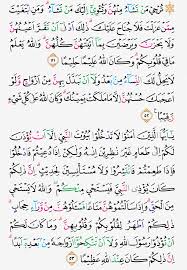 ۞ تُرْجِى مَن تَشَآءُ مِنْهُنَّ وَتُـْٔوِىٓ إِلَيْكَ مَن تَشَآءُ وَمَنِ ٱبْتَغَيْتَ
مِمَّنْ عَزَلْتَ فَلَا جُنَاحَ عَلَيْكَ ذَٰلِكَ أَدْنَىٰٓ أَن تَقَرَّ أَعْيُنُهُنَّ
وَلَا يَحْزَنَّ وَيَرْضَيْنَ بِمَآ ءَاتَيْتَهُنَّ كُلُّهُنَّ وَٱللَّهُ يَعْلَمُ
مَا فِى قُلُوبِكُمْ وَكَانَ ٱللَّهُ عَلِيمًا حَلِيمًا ٥١
لَّا يَحِلُّ لَكَ ٱلنِّسَآءُ مِنۢ بَعْدُ وَلَآ أَن تَبَدَّلَ بِهِنَّ مِنْ أَزْوَٰجٍ وَلَوْ
أَعْجَبَكَ حُسْنُهُنَّ إِلَّا مَا مَلَكَتْ يَمِينُكَ وَكَانَ ٱللَّهُ عَلَىٰ كُلِّ شَىْءٍ
رَّقِيبًا ٥٢
يَٰٓأَيُّهَا ٱلَّذِينَ ءَامَنُوا۟ لَا تَدْخُلُوا۟ بُيُوتَ ٱلنَّبِىِّ إِلَّآ أَن يُؤْذَنَ
لَكُمْ إِلَىٰ طَعَامٍ غَيْرَ نَٰظِرِينَ إِنَىٰهُ وَلَٰكِنْ إِذَا دُعِيتُمْ فَٱدْخُلُوا۟
فَإِذَا طَعِمْتُمْ فَٱنتَشِرُوا۟ وَلَا مُسْتَـْٔنِسِينَ لِحَدِيثٍ إِنَّ ذَٰلِكُمْ
كَانَ يُؤْذِى ٱلنَّبِىَّ فَيَسْتَحْىِۦ مِنكُمْ وَٱللَّهُ لَا يَسْتَحْىِۦ
مِنَ ٱلْحَقِّ وَإِذَا سَأَلْتُمُوهُنَّ مَتَٰعًا فَسْـَٔلُوهُنَّ مِن وَرَآءِ حِجَابٍ
ذَٰلِكُمْ أَطْهَرُ لِقُلُوبِكُمْ وَقُلُوبِهِنَّ وَمَا كَانَ لَكُمْ
أَن تُؤْذُوا۟ رَسُولَ ٱللَّهِ وَلَآ أَن تَنكِحُوٓا۟ أَزْوَٰجَهُۥ مِنۢ بَعْدِهِۦٓ أَبَدًا
إِنَّ ذَٰلِكُمْ كَانَ عِندَ ٱللَّهِ عَظِيمًا ٥٣